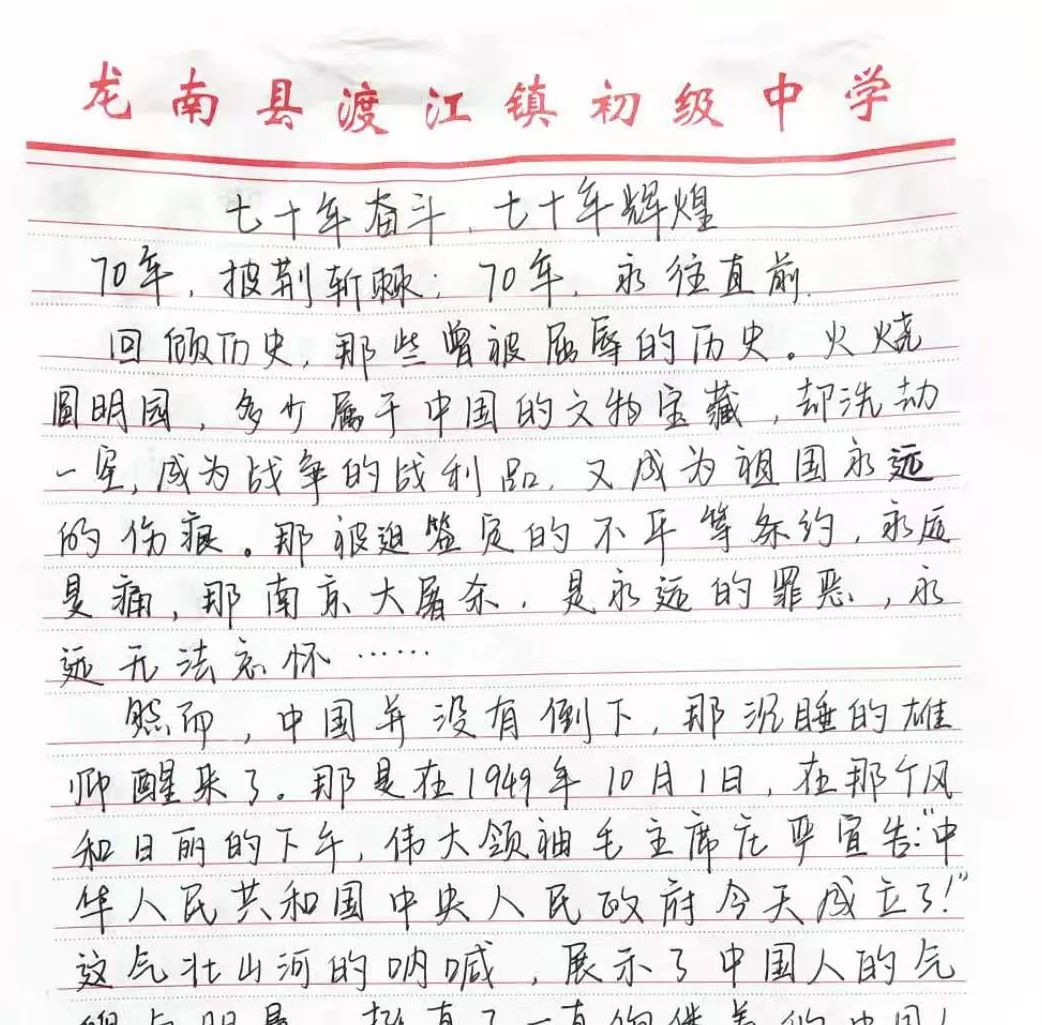 龙南县渡江镇初级中学
七十年奋斗，七十年辉煌
70年，披荆斩棘；70年，永往直前.
回顾历史，那些曾被屈辱的历史。火烧
圆明园，多少属于中国的文物宝藏，却洗劫
一空，成为战争的战利品，又成为祖国永远
的伤痕。那被迫签定的不平等条约，永远
是痛，那南京大屠杀，是永远的罪恶，永
远无法忘怀……
然而，中国并没有倒下，那沉睡的雄
狮醒来了。那是在1949年10月1日，在那个风
和日丽的下午，伟大领袖毛主席庄严宣告："中
华人民共和国中央人民政府今天成立了！"
这气壮山河的呐喊，展示了中国人的气